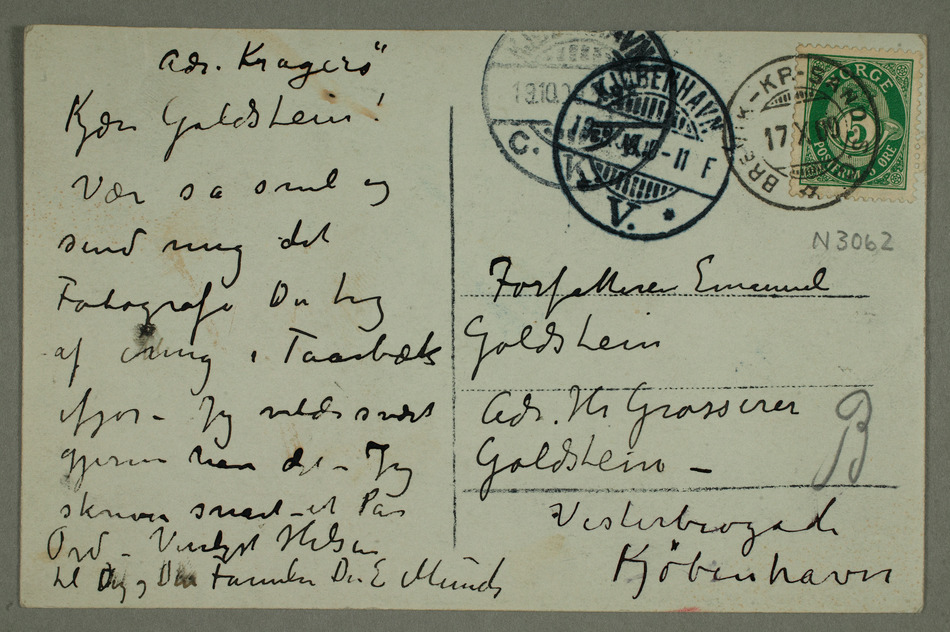 Adr. Kragerö
Kjære Goldstein!
Vær så snil og
send mig det
Fotografi Du tog
af mig i Taarbæk
ifjor – Jeg vilde svært
gjerne have det – Jeg
skriver snart et Par
Ord – Venligst Hilsen
til Dig og Din Familie Din E Munch
KJØBENHAVN
19.10.
C.
K.
KJØBENHAVN
-11 F
V.
BREVIK.-KR.SAND
17 X 09
NORGE
5
POSTFRIM. 5 ØRE
N3062
Forfatteren Emanuel
Goldstein
Adr. Hr Grosserer
Goldstein –
Vesterbrogade
Kjöbenhavn
B